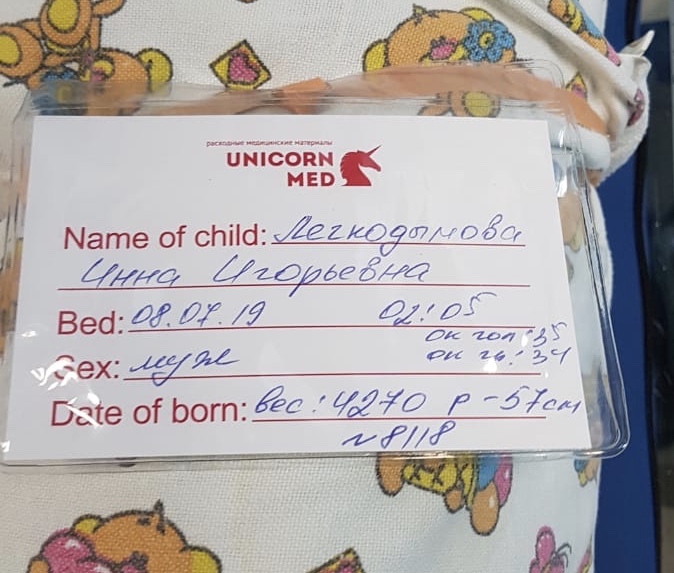 расходные медицинские материалы
UNICORN
MED
Name of child: Легкодымова
Инна Игорьевна
Bed: 08.07.19 02:05
ок гол: 35
Sex: муж
ок гр: 34
Date of born: вес: 4270 р-57см
№8118